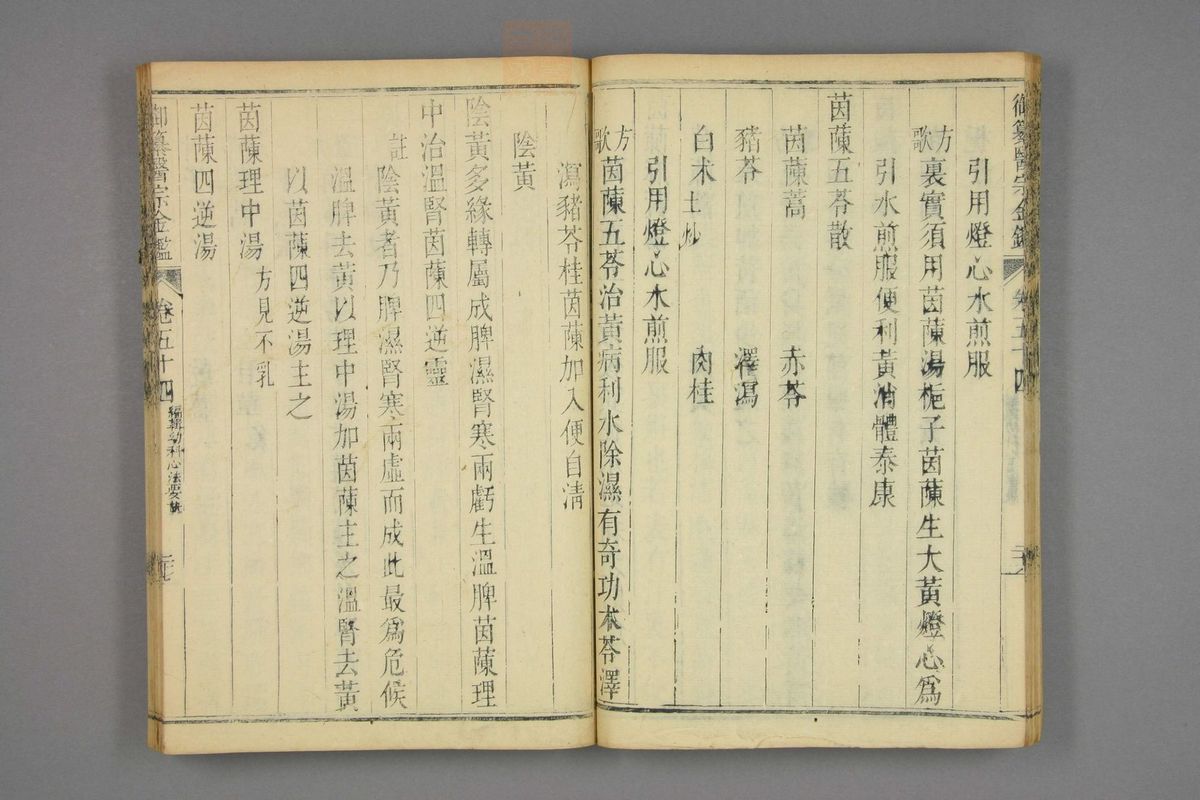 御纂醫宗金鑑 卷五十四
引用燈心水煎服
方歌 裏實須用茵蔯湯梔子茵蔯生大黃燈心為
引水煎服便利黃消體泰康
茵蔯五苓散
茵蔯蒿 赤苓
豬苓 澤瀉
白朮土炒 肉桂
引用燈心水煎服
方歌 茵蔯五苓治黃病利水除濕有奇功朮苓澤
瀉豬苓桂茵蔯加入便自清
陰黃
陰黃多緣轉屬成脾濕腎寒兩虧生溫脾茵蔯理
中治溫腎茵蔯四逆靈
註 陰黃者乃脾濕腎寒兩虛而成此最為危候
溫脾去黃以理中湯加茵蔯主之溫腎去黃
以茵蔯四逆湯主之
茵蔯理中湯 方見不乳
茵蔯四逆湯
御纂醫宗金鑑 卷五十四 編輯幼科心法要訣